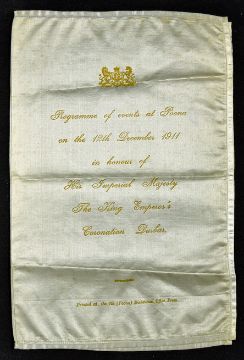 Programme of events at Poona
on the 12th December 1911
in honour of
His Imperial Majesty
The King Emperor's
Coronation Durbar.
Printed at the 6th (Poona) Divisional Office Press